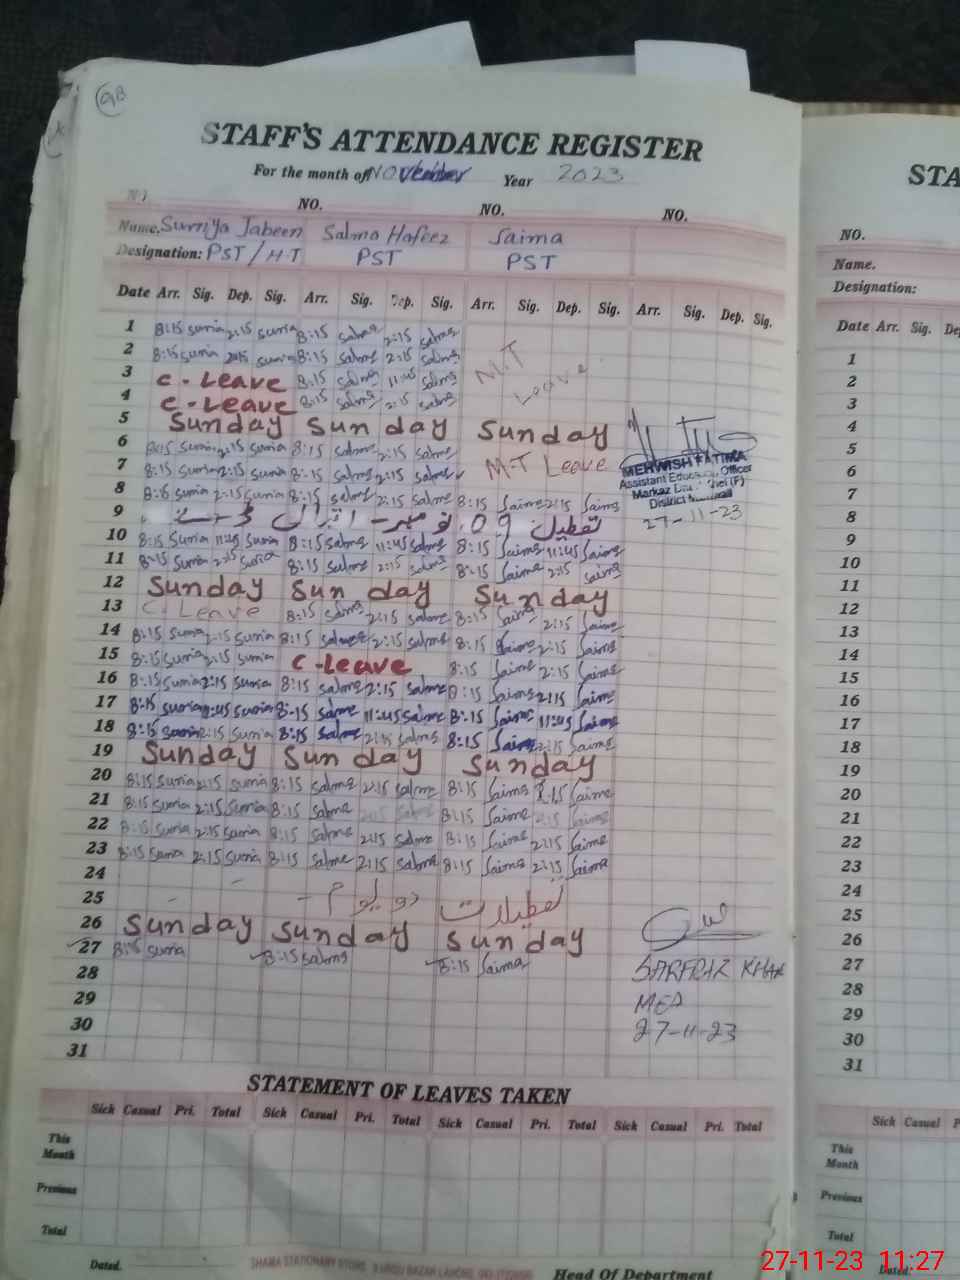 98
STAFF'S ATTENDANCE REGISTER
For the month of November Year 2023
NO. NO. NO.
Name. Sumiya Jabeen Salma Hafeez Saima
Designation: PST / H.T PST PST
Date Arr. Sig. Dep. Sig. Arr. Sig. Dep. Sig. Arr. Sig. Dep. Sig. Arr. Sig. Dep. Sig.
1 8:15 suria 2:15 suria 8:15 salme 2:15 salme
2 8:15 suria 2:15 suria 8:15 salme 2:15 salme M.T
3 C - Leave 8:15 salme 11:45 salme Leave
4 C - Leave 8:15 salme 2:15 salme
5 Sunday Sunday Sunday
6 8:15 suria 2:15 suria 8:15 salme 2:15 salme
7 8:15 suria 2:15 suria 8:15 salme 2:15 salme M.T Leave
8 8:15 suria 2:15 suria 8:15 salme 2:15 salme 8:15 Saime 2:15 Saime
9 تعطیل 09 نومبر
10 8:15 suria 11:45 suria 8:15 salme 11:45 salme 8:15 Saime 11:45 Saime
11 8:15 suria 2:15 suria 8:15 salme 2:15 salme 8:15 Saime 2:15 Saime
12 Sunday Sunday Sunday
13 C. Leave 8:15 salme 2:15 salme 8:15 Saime 2:15 Saime
14 8:15 suria 2:15 suria 8:15 salme 2:15 salme 8:15 Saime 2:15 Saime
15 8:15 suria 2:15 suria C - Leave 8:15 Saime 2:15 Saime
16 8:15 suria 2:15 suria 8:15 salme 2:15 salme 8:15 Saime 2:15 Saime
17 8:15 suria 11:45 suria 8:15 salme 11:45 salme 8:15 Saime 11:45 Saime
18 8:15 suria 2:15 suria 8:15 salme 2:15 salme 8:15 Saime 2:15 Saime
19 Sunday Sunday Sunday
20 8:15 suria 2:15 suria 8:15 salme 2:15 salme 8:15 Saime 2:15 Saime
21 8:15 suria 2:15 suria 8:15 salme 2:15 salme 8:15 Saime 2:15 Saime
22 8:15 suria 2:15 suria 8:15 salme 2:15 salme 8:15 Saime 2:15 Saime
23 8:15 suria 2:15 suria 8:15 salme 2:15 salme 8:15 Saime 2:15 Saime
24
25 تعطیلات دو یوم
26 Sunday Sunday Sunday
27 8:15 suria 8:15 salme 8:15 Saima
28
29
30
31
MEHWISH FATIMA
Assistant Education Officer
Markaz
District
27-11-23
SARFRAZ KHAN
MEA
27-11-23
STATEMENT OF LEAVES TAKEN
Sick Casual Pri. Total Sick Casual Pri. Total Sick Casual Pri. Total Sick Casual Pri. Total
This Month
Previous
Total
Dated. SHAMA STATIONARY STORE URDU BAZAR LAHORE Head Of Department
STA
NO.
Name.
Designation:
Date Arr. Sig.
1
2
3
4
5
6
7
8
9
10
11
12
13
14
15
16
17
18
19
20
21
22
23
24
25
26
27
28
29
30
31
Sick Casual P
This Month
Previous
Total
Dated.
27-11-23 11:27